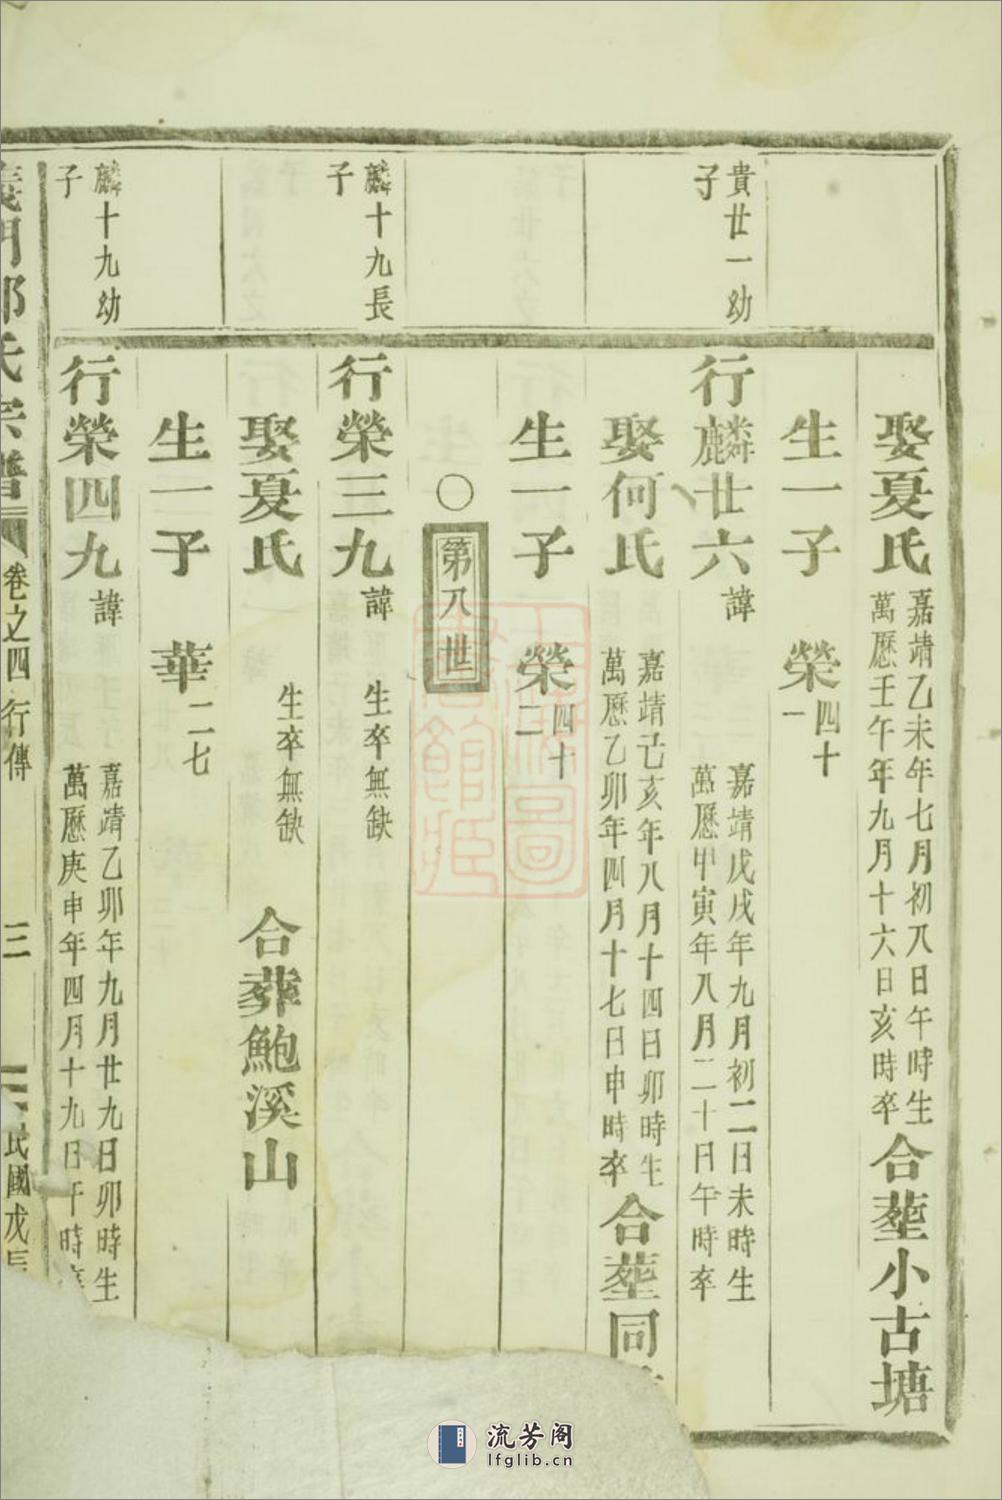 娶夏氏 嘉靖乙未年七月初八日午時生
萬厯壬午年九月十六日亥時卒 合塟小古塘
生一子 榮四十一
貴廿一幼子
行麟廿六 諱 嘉靖戊戌年九月初二日未時生
萬厯甲寅年八月二十日午時卒
娶何氏 嘉靖己亥年八月十四日卯時生
萬厯乙卯年四月十七日申時卒 合塟同
生一子 榮四十二
○第八世
麟十九長子
行榮三九 諱 生卒無缺
娶夏氏 生卒無缺 合葬鮑溪山
生一子 華二七
麟十九幼子
行榮四九 諱 嘉靖乙卯年九月廿九日卯時生
萬厯庚申年四月十九日午時卒
義門 氏宗譜 卷之四 行傳 三 民國戊辰
上海圖書館藏
流芳阁
lfglib.cn